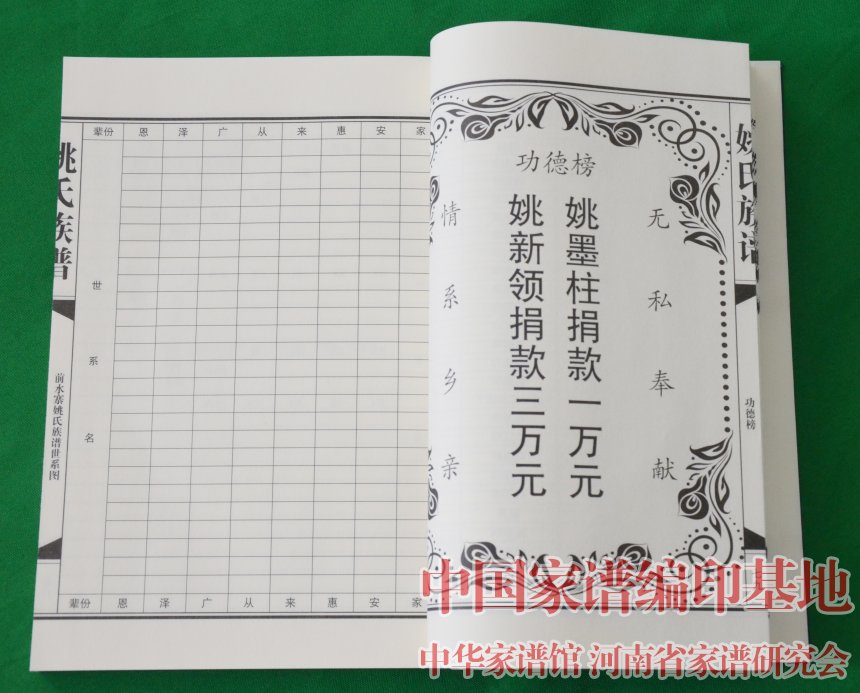 姚氏族谱
前水寨姚氏族谱世系图
辈份 恩 泽 广 从 来 惠 安 家
世系名
辈份 恩 泽 广 从 来 惠 安 家
功德榜
无私奉献
姚墨柱捐款一万元
姚新领捐款三万元
情系乡亲
姚氏族谱
功德榜
中国家谱编印基地
中华家谱馆 河南省家谱研究会